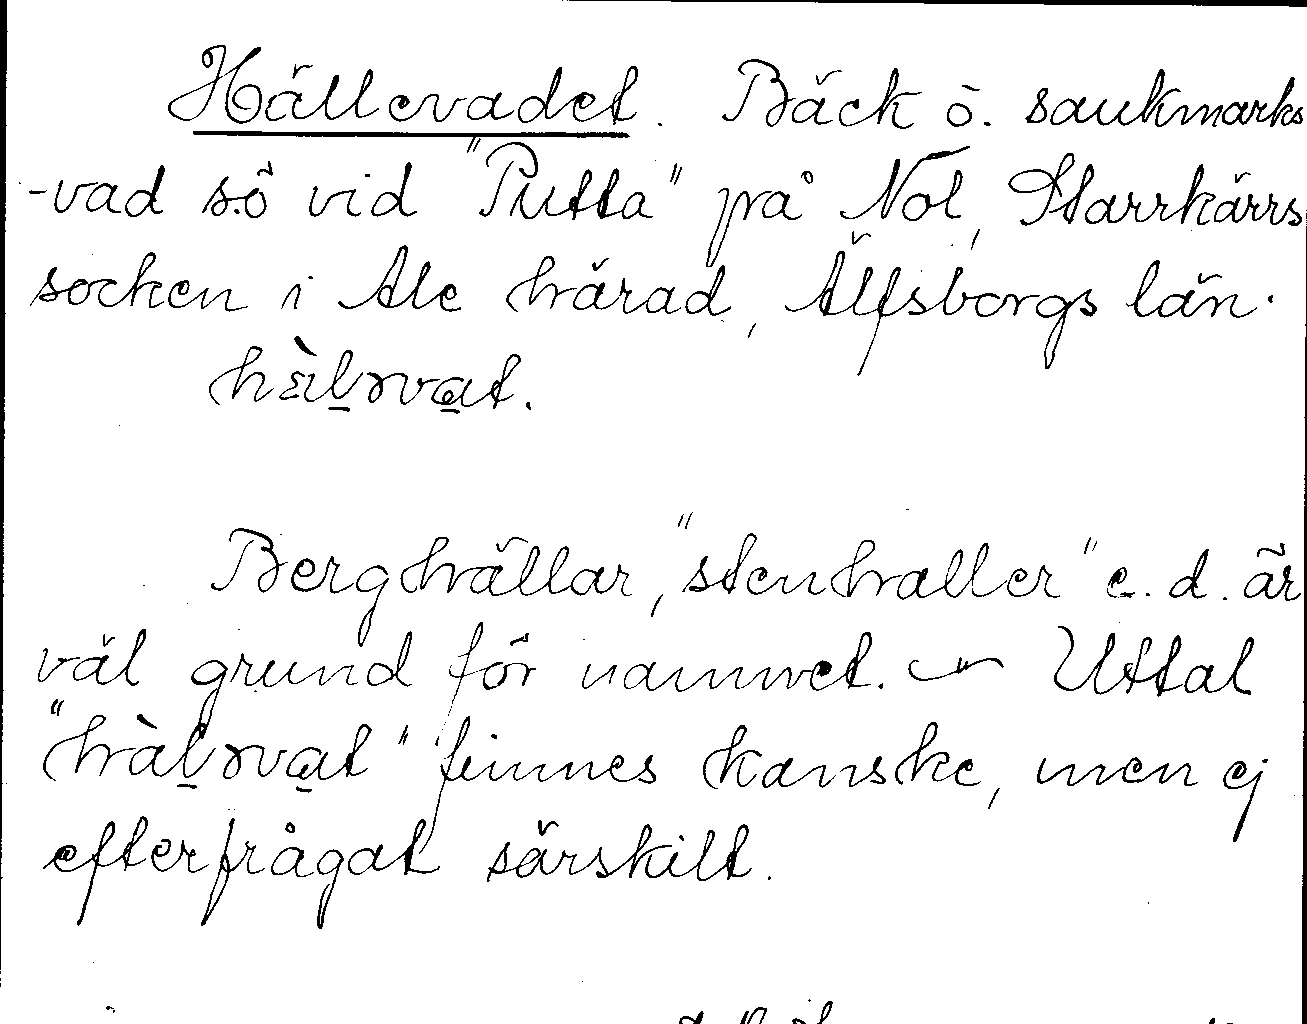 Hällevadet. Bäck o. saukmarks
-vad s.ö vid "Putta" på Nol, Starrkärrs
socken i Ale härad, Älfsborgs län.
hæ̀l̠ɘva̠t.
Berghällar, "stenhaller" e. d. är
väl grund för namnet. — Uttal
"hàl̠ɘva̠t" finnes kanske, men ej
efterfrågat särskilt.